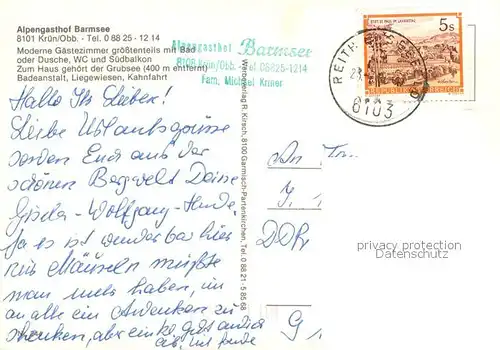 Alpengasthof Barmsee
8101 Krün/Obb. - Tel. 0 88 25 - 12 14
Moderne Gästezimmer größtenteils mit Bad
oder Dusche, WC und Südbalkon
Zum Haus gehört der Grubsee (400 m entfernt)
Badeanstalt, Liegewiesen, Kahnfahrt
Alpengasthof Barmsee
8108 Krün/Obb. Tel. 08825-1214
Fam. Michael Kriner
Hallo Ihr Lieben!
Liebe Urlaubsgrüsse
senden Euch aus der
schönen Bergwelt Deine
Gisela - Wolfgang -
Ja es ist wunderbar hier
ein Mäuseln müßte
man noch haben, um
an alle ein Andenken zu
schenken, aber
Werbeverlag R. Kirsch, 8100 Garmisch-Partenkirchen, Tel. 0 88 21 - 5 88 25
5s
REPUBLIK ÖSTERREICH
REITH
6103
An
DDR
privacy protection
Datenschutz